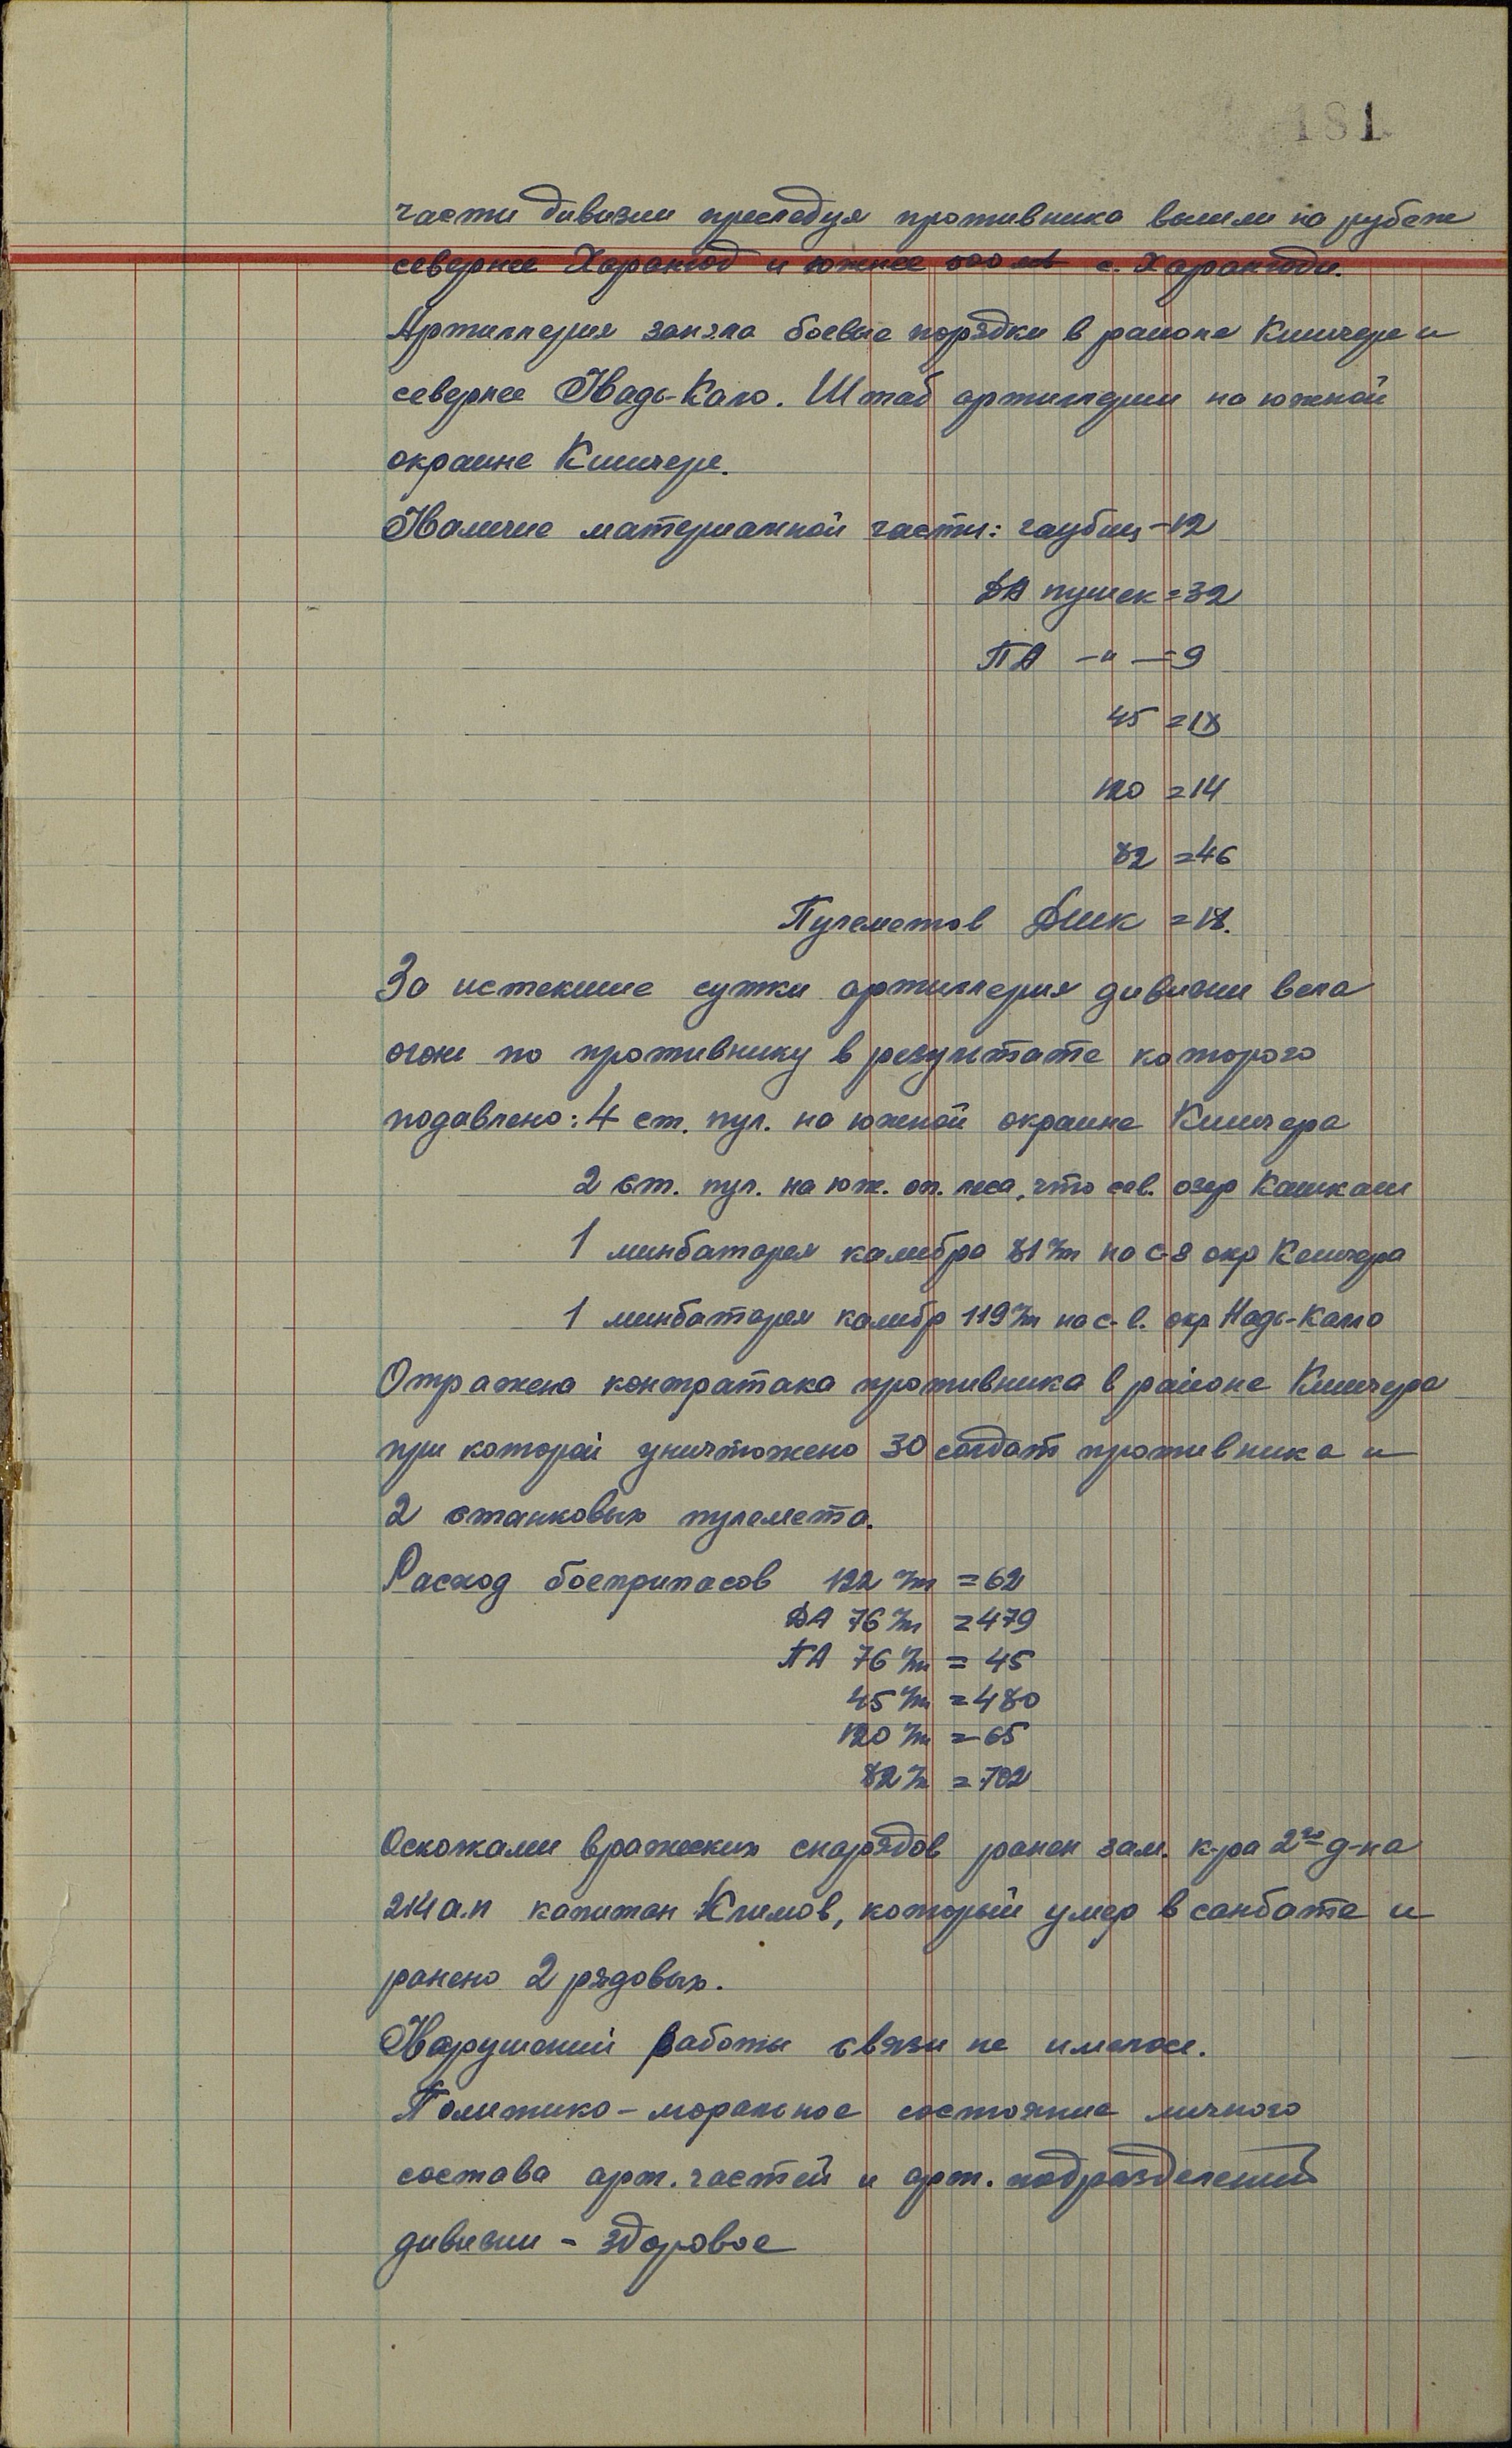 181
части дивизии преследуя противника вышли на рубеж
севернее Харангод и южнее 500 мт с. Харангоди.
Артиллерия заняла боевые порядки в районе Кишчере и
севернее Надь-Кало. Штаб артиллерии на южной
окраине Кишчере.
Наличие материальной части: гаубиц - 12
ДА пушек = 32
ПА —"— = 9
45 = 18
120 = 14
82 = 46
Пулеметов Дшк = 18.
За истекшие сутки артиллерия дивизии вела
огонь по противнику в результате которого
подавлено: 4 ст. пул. на южной окраине Кишчера
2 ст. пул. на юж. оп. леса, что сев. озер Кашкаш
1 минбатарея калибра 81 %m на с-в окр Кишчера
1 минбатарея калибр 119 %m на с-в. окр Надь-Калло
Отражена контратака противника в районе Кишчера
при которой уничтожено 30 солдат противника и
2 станковых пулемета.
Расход боеприпасов 122 %m = 62
ДА 76 %m = 479
ПА 76 %m = 45
45 %m = 480
120 %m = 65
82 %m = 702
Осколками вражеских снарядов ранен зам. к-ра 2го д-на
214 а.п капитан Климов, который умер в санбате и
ранено 2 рядовых.
Нарушений работы связи не имелось.
Политико-моральное состояние личного
состава арт. частей и арт. подразделений
дивизии - здоровое